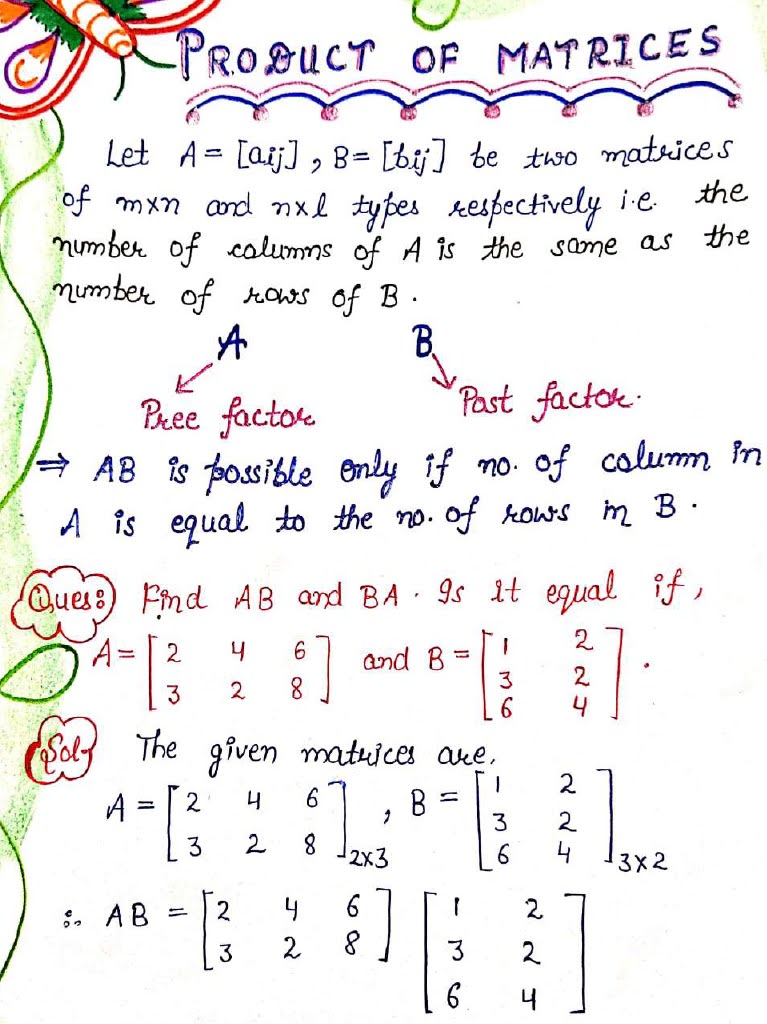 PRODUCT OF MATRICES
Let A = [aij] , B = [bij] be two matrices
of m×n and n×l types respectively i.e. the
number of columns of A is the same as the
number of rows of B .
A B
Pree factor Post factor.
⇒ AB is possible only if no. of column in
A is equal to the no. of rows in B .
Ques: Find AB and BA . Is it equal if ,
A = [ 2 4 6 ] and B = [ 1 2 ] .
3 2 8 3 2
6 4
Sol The given matrices are,
A = [ 2 4 6 ] , B = [ 1 2 ]
3 2 8 2×3 3 2
6 4 3×2
∴ AB = [ 2 4 6 ] [ 1 2 ]
3 2 8 3 2
6 4